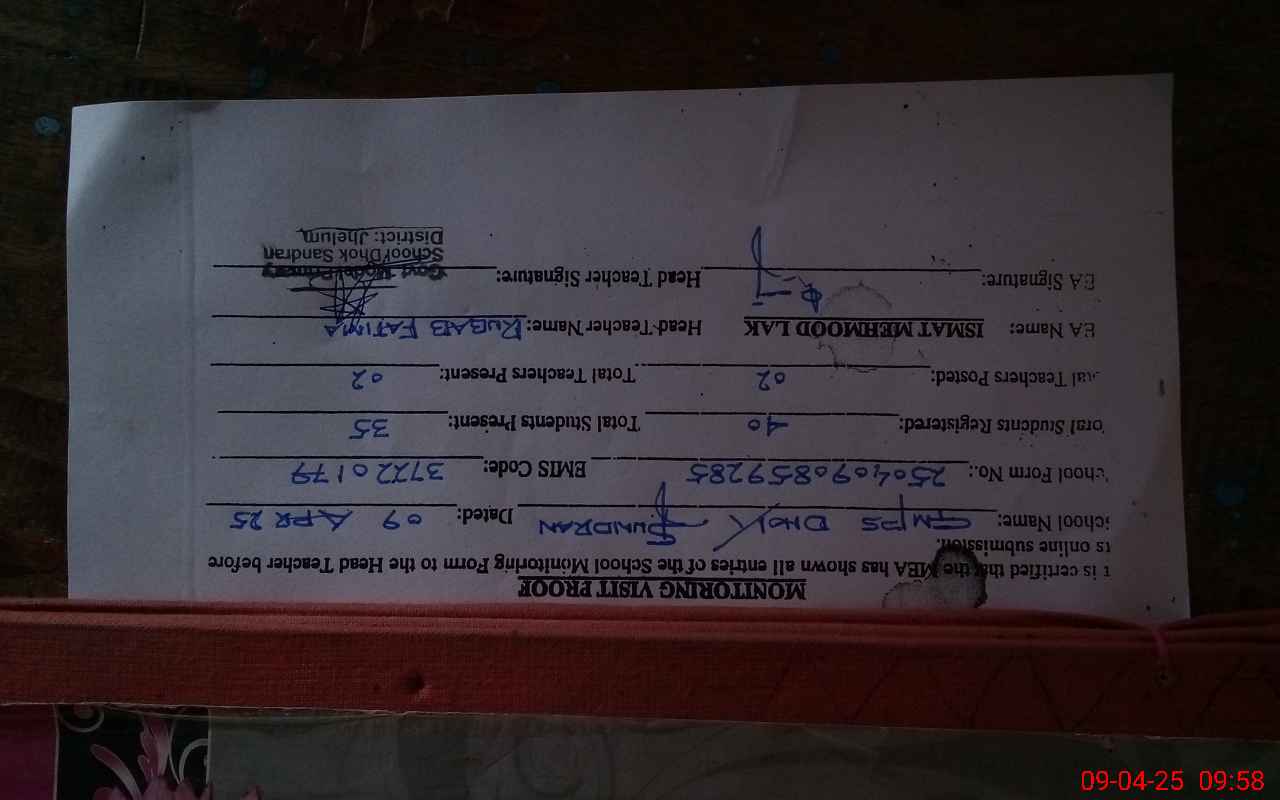 MONITORING VISIT PROOF
t is certified that the MEA has shown all entries of the School Monitoring Form to the Head Teacher before
ts online submission.
chool Name: GMPS DHOK SUNDRAN Dated: 09 APR 25
chool Form No.: 2504090859285 EMIS Code: 37220179
otal Students Registered: 40 Total Students Present: 35
tal Teachers Posted: 02 Total Teachers Present: 02
EA Name: ISMAT MEHMOOD LAK Head Teacher Name: RUBAB FATIMA
EA Signature: Head Teacher Signature:
Govt Model Primary
School Dhok Sandran
District: Jhelum
09-04-25 09:58